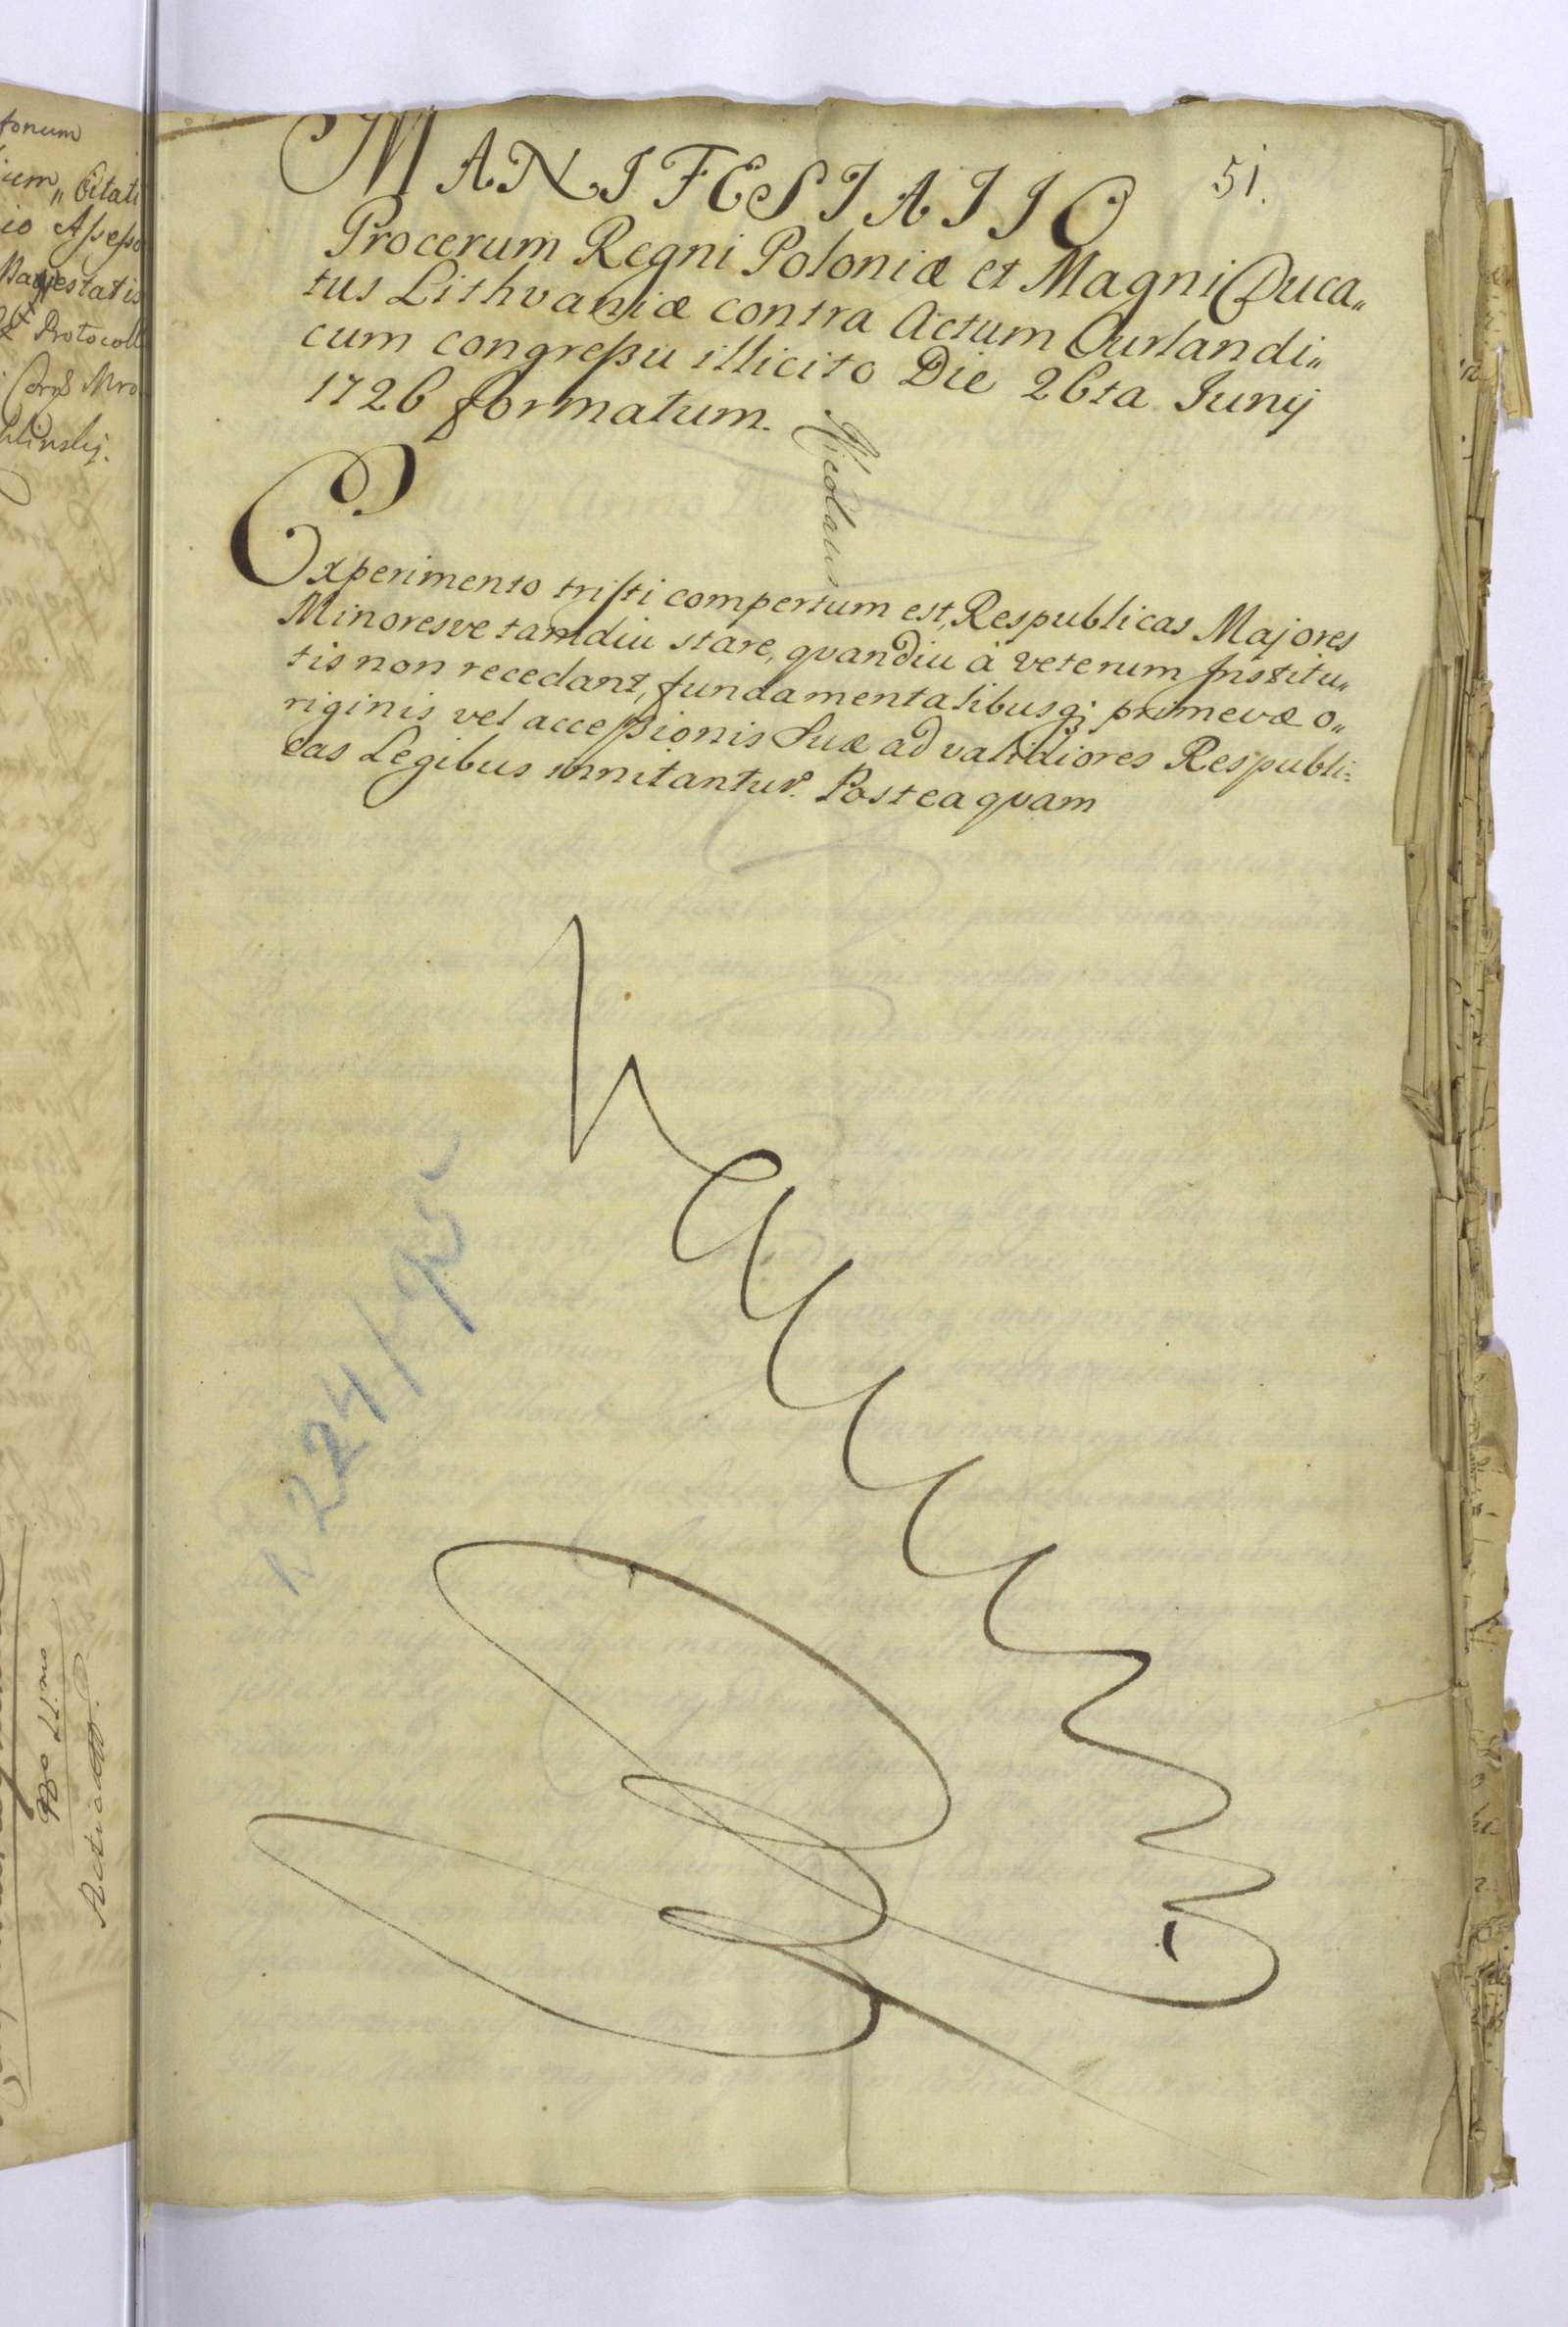 51.
MANIFESTATIO
Procerum Regni Poloniæ et Magni Duca„
tus Lithvaniæ contra Actum Curlandi„
cum congreßu illicito Die 26ta Junij
1726 formatum.
Nicolaus
Experimento tristi compertum est, Respublicas Majores
Minoresve tamdiu stare, qvandiu à veterum Institu„
tis non recedant, fundamentalibusq; primevæ o„
riginis vel acceßionis suæ ad validiores Respubli=
cas Legibus innitantur. Postea qvam
224/95
tonum
iem„ Citati
io Aßeßo
Majestatis
Protocoll
Acticat